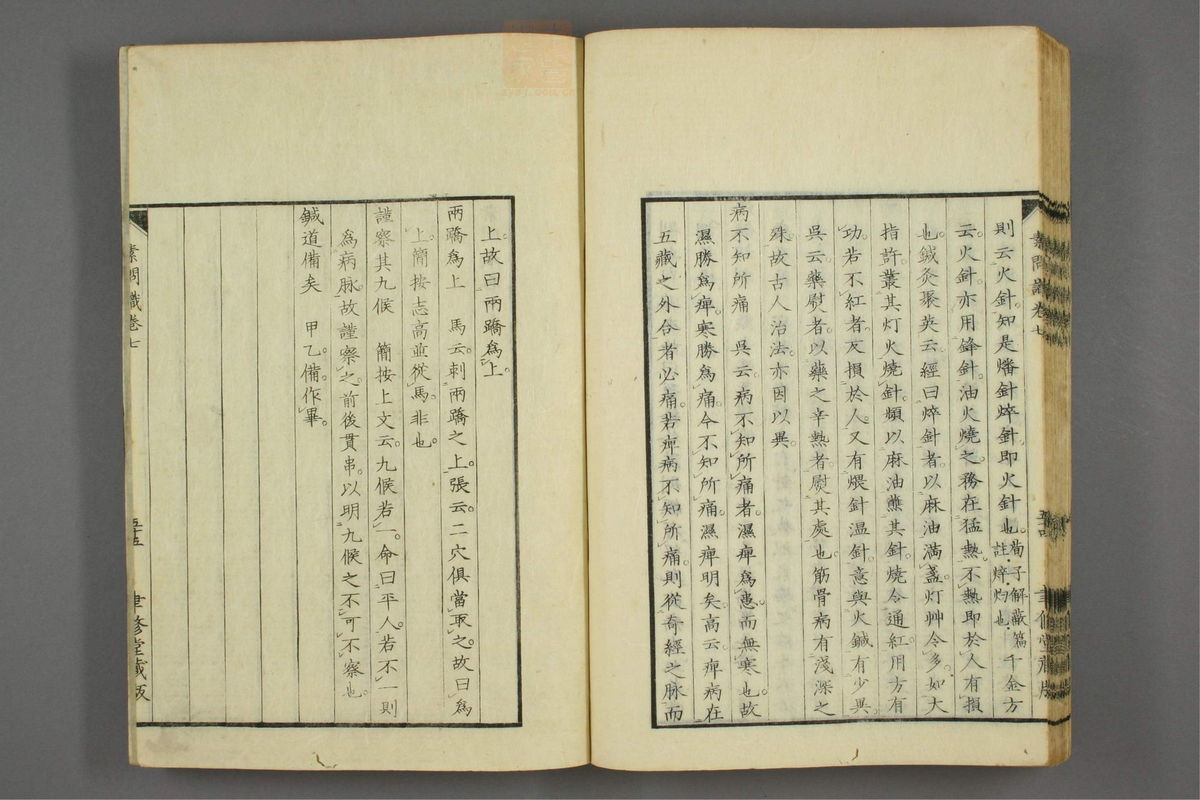 則云火針。知是燔針焠針即火針也。荀子解蔽篇註焠灼也。千金方
云。火針亦用鋒針。油火燒之。務在猛熱。不熱即於人有損
也。鍼灸聚英云。經曰焠針者。以麻油滿盞。灯艸令多。如大
指許。叢其灯火燒針。頻以麻油蘸其針。燒令通紅。用方有
功。若不紅者。反損於人。又有煨針溫針。意與火鍼有少異。
吳云。藥熨者。以藥之辛熱者。熨其處也。筋骨病有淺深之
殊。故古人治法亦因以異。
病不知所痛　吳云。病不知所痛者。濕痺爲患。而無寒也。故
濕勝爲痺。寒勝爲痛。今不知所痛。濕痺明矣。高云。痺病在
五藏之外合者必痛。若痺病不知所痛。則從奇經之脉而
素問識卷七
五十四
聿修堂藏版
上。故曰兩蹻爲上。
兩蹻爲上　馬云。刺兩蹻之上。張云。二穴俱當取之。故曰爲
上。簡按志高並從馬。非也。
謹察其九候　簡按上文云。九候若一。命曰平人。若不一則
爲病脉。故謹察之。前後貫串。以明九候之不可不察也。
鍼道備矣　甲乙。備。作畢。
素問識卷七
五十五
聿修堂藏版